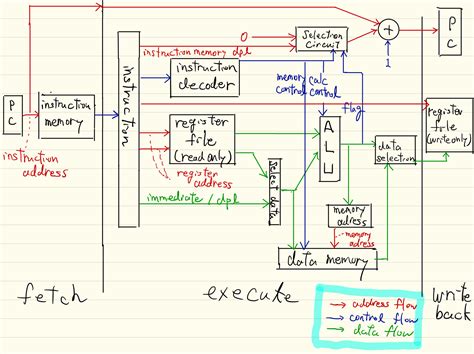 Selection
Circuit
0
+
1
P
C
instruction memory dpl
instruction
decoder
memory calc
control control
flag
P
C
instruction
memory
instruction
register
file
(read only)
A
L
U
register
file
(write only)
data
selection
instruction
address
register
address
select data
immediate / dpl
memory
adress
memory
adress
data memory
fetch
execute
write
back
address flow
control flow
data flow